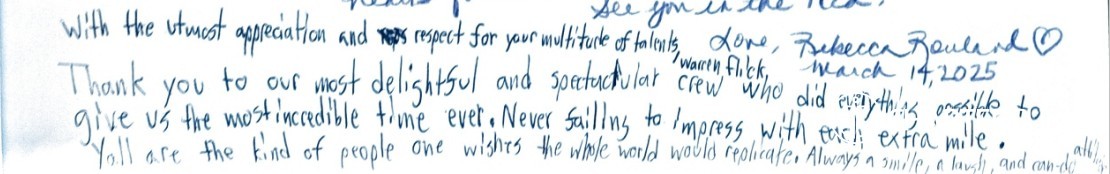 See you in the
With the utmost appreciation and respect for your multitude of talents, Love, Rebecca Rowland ♡
Warren Flick, March 14, 2025
Thank you to our most delightful and spectactular crew who did everything possible to
give us the most incredible time ever. Never failing to impress with each extra mile.
Y'all are the kind of people one wishes the whole world would replicate. Always a smile, a laugh, and can-do